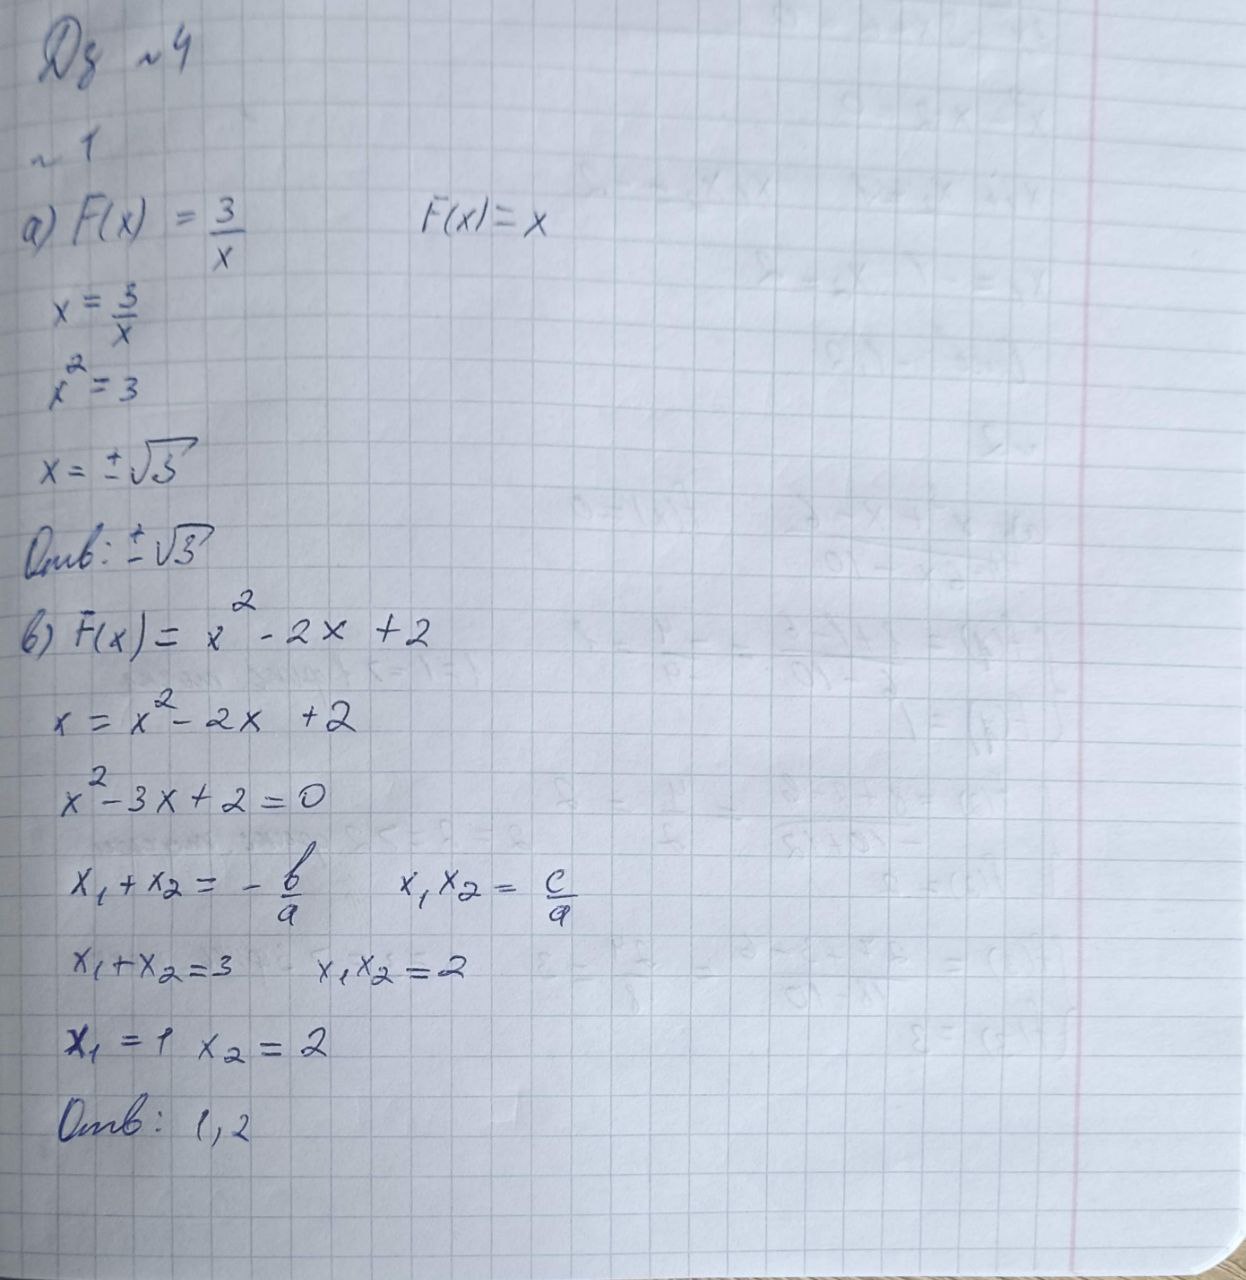 Дз ~ 4
~ 1
а) F(x) = 3/x F(x) = x
x = 3/x
x² = 3
x = ±√3
Отв: ±√3
в) F(x) = x² - 2x + 2
x = x² - 2x + 2
x² - 3x + 2 = 0
x₁ + x₂ = - b/a x₁x₂ = c/a
x₁ + x₂ = 3 x₁x₂ = 2
x₁ = 1 x₂ = 2
Отв: 1, 2